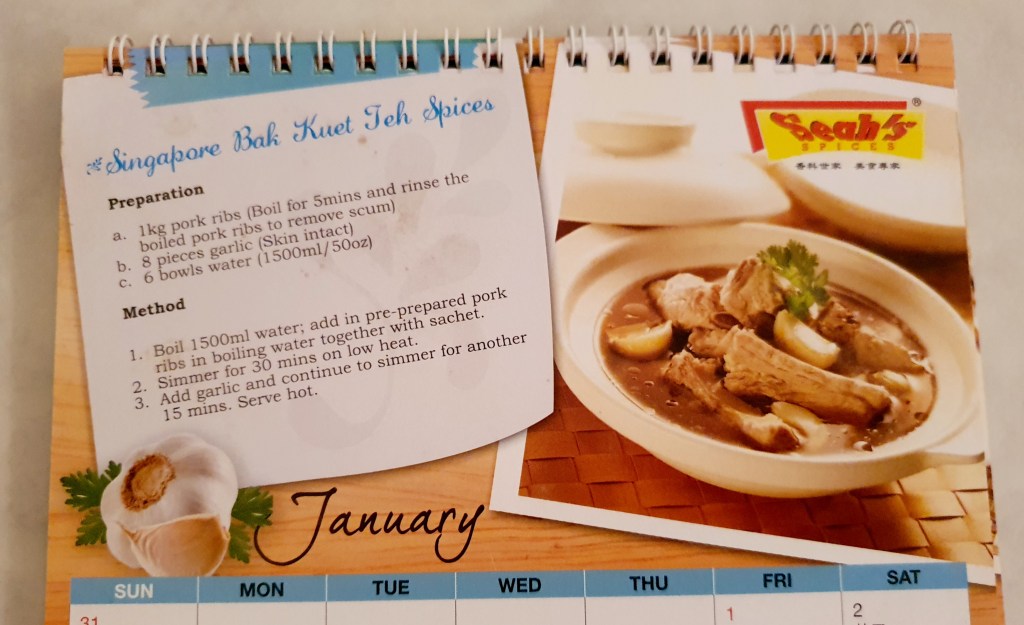 Singapore Bak Kuet Teh Spices
Preparation
a. 1kg pork ribs (Boil for 5mins and rinse the
boiled pork ribs to remove scum)
b. 8 pieces garlic (Skin intact)
c. 6 bowls water (1500ml/50oz)
Method
1. Boil 1500ml water; add in pre-prepared pork
ribs in boiling water together with sachet.
2. Simmer for 30 mins on low heat.
3. Add garlic and continue to simmer for another
15 mins. Serve hot.
Seah's®
SPICES
香料世家 美食專家
January
SUN MON TUE WED THU FRI SAT
31 1 2